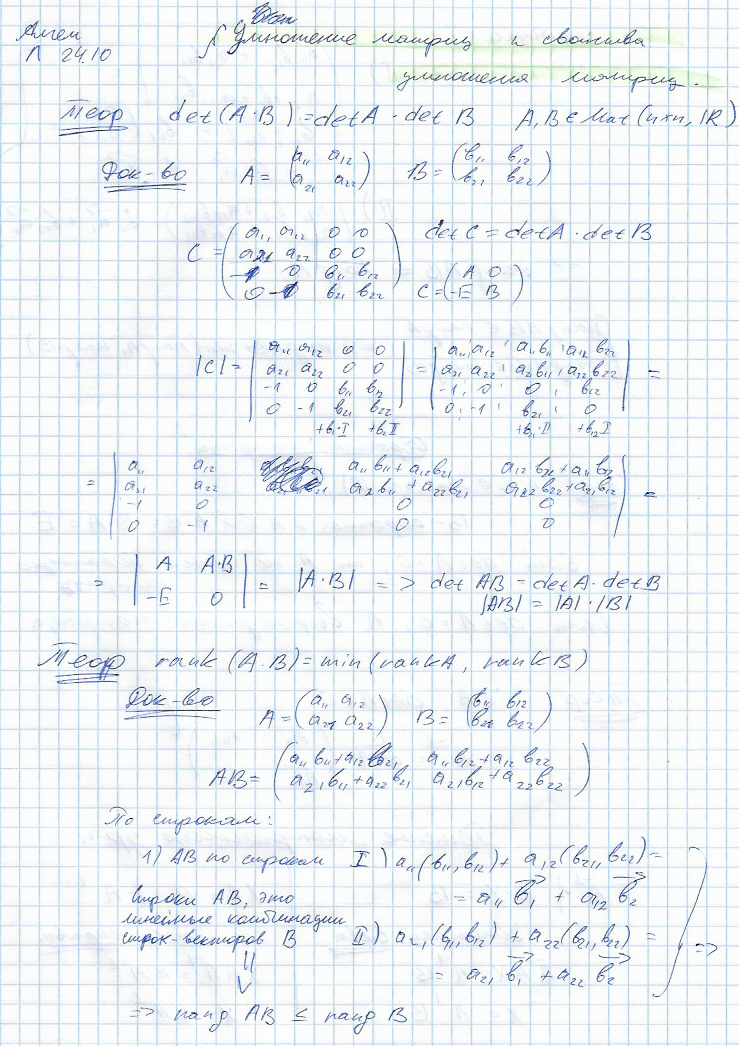 Л 24.10
§ Умножение матриц и свойства
умножения матриц.
Теор det(A·B) = detA · det B A, B ∈ Mat(n×n, IR)
Док-во A = (a₁₁ a₁₂ / a₂₁ a₂₂) B = (b₁₁ b₁₂ / b₂₁ b₂₂)
C = (a₁₁ a₁₂ 0 0 / a₂₁ a₂₂ 0 0 / -1 0 b₁₁ b₁₂ / 0 -1 b₂₁ b₂₂) det C = detA · det B
C = (A 0 / -E B)
|C| = |a₁₁ a₁₂ 0 0 / a₂₁ a₂₂ 0 0 / -1 0 b₁₁ b₁₂ / 0 -1 b₂₁ b₂₂| = |a₁₁ a₁₂ a₁₁b₁₁ a₁₂b₂₂ / a₂₁ a₂₂ a₂b₁₁ a₂₂b₂₂ / -1 0 0 b₁₂ / 0 -1 b₂₁ 0| =
+b₁·I +b₂II +b₂₁·II +b₁₂I
= |a₁₁ a₁₂ a₁₁b₁₁ + a₁₂b₂₁ a₁₂b₂₂ + a₁₁b₁₂ / a₂₁ a₂₂ a₂₁b₁₁ + a₂₂b₂₁ a₂₂b₂₂ + a₂₁b₁₂ / -1 0 0 0 / 0 -1 0 0| =
= |A A·B / -E 0| = |A·B| => det AB = detA · det B
|AB| = |A| · |B|
Теор rank (A·B) = min(rank A, rank B)
Док-во A = (a₁₁ a₁₂ / a₂₁ a₂₂) B = (b₁₁ b₁₂ / b₂₁ b₂₂)
AB = (a₁₁b₁₁+a₁₂b₂₁ a₁₁b₁₂+a₁₂b₂₂ / a₂₁b₁₁+a₂₂b₂₁ a₂₁b₁₂+a₂₂b₂₂)
По строкам:
1) AB по строкам I) a₁₁(b₁₁, b₁₂) + a₁₂(b₂₁, b₂₂) =
= a₁₁ b₁ + a₁₂ b₂
Строки AB, это
линейные комбинации
строк-векторов B II) a₂₁(b₁₁, b₁₂) + a₂₂(b₂₁, b₂₂) = =>
= a₂₁ b₁ + a₂₂ b₂
=> ранг AB ≤ ранг B